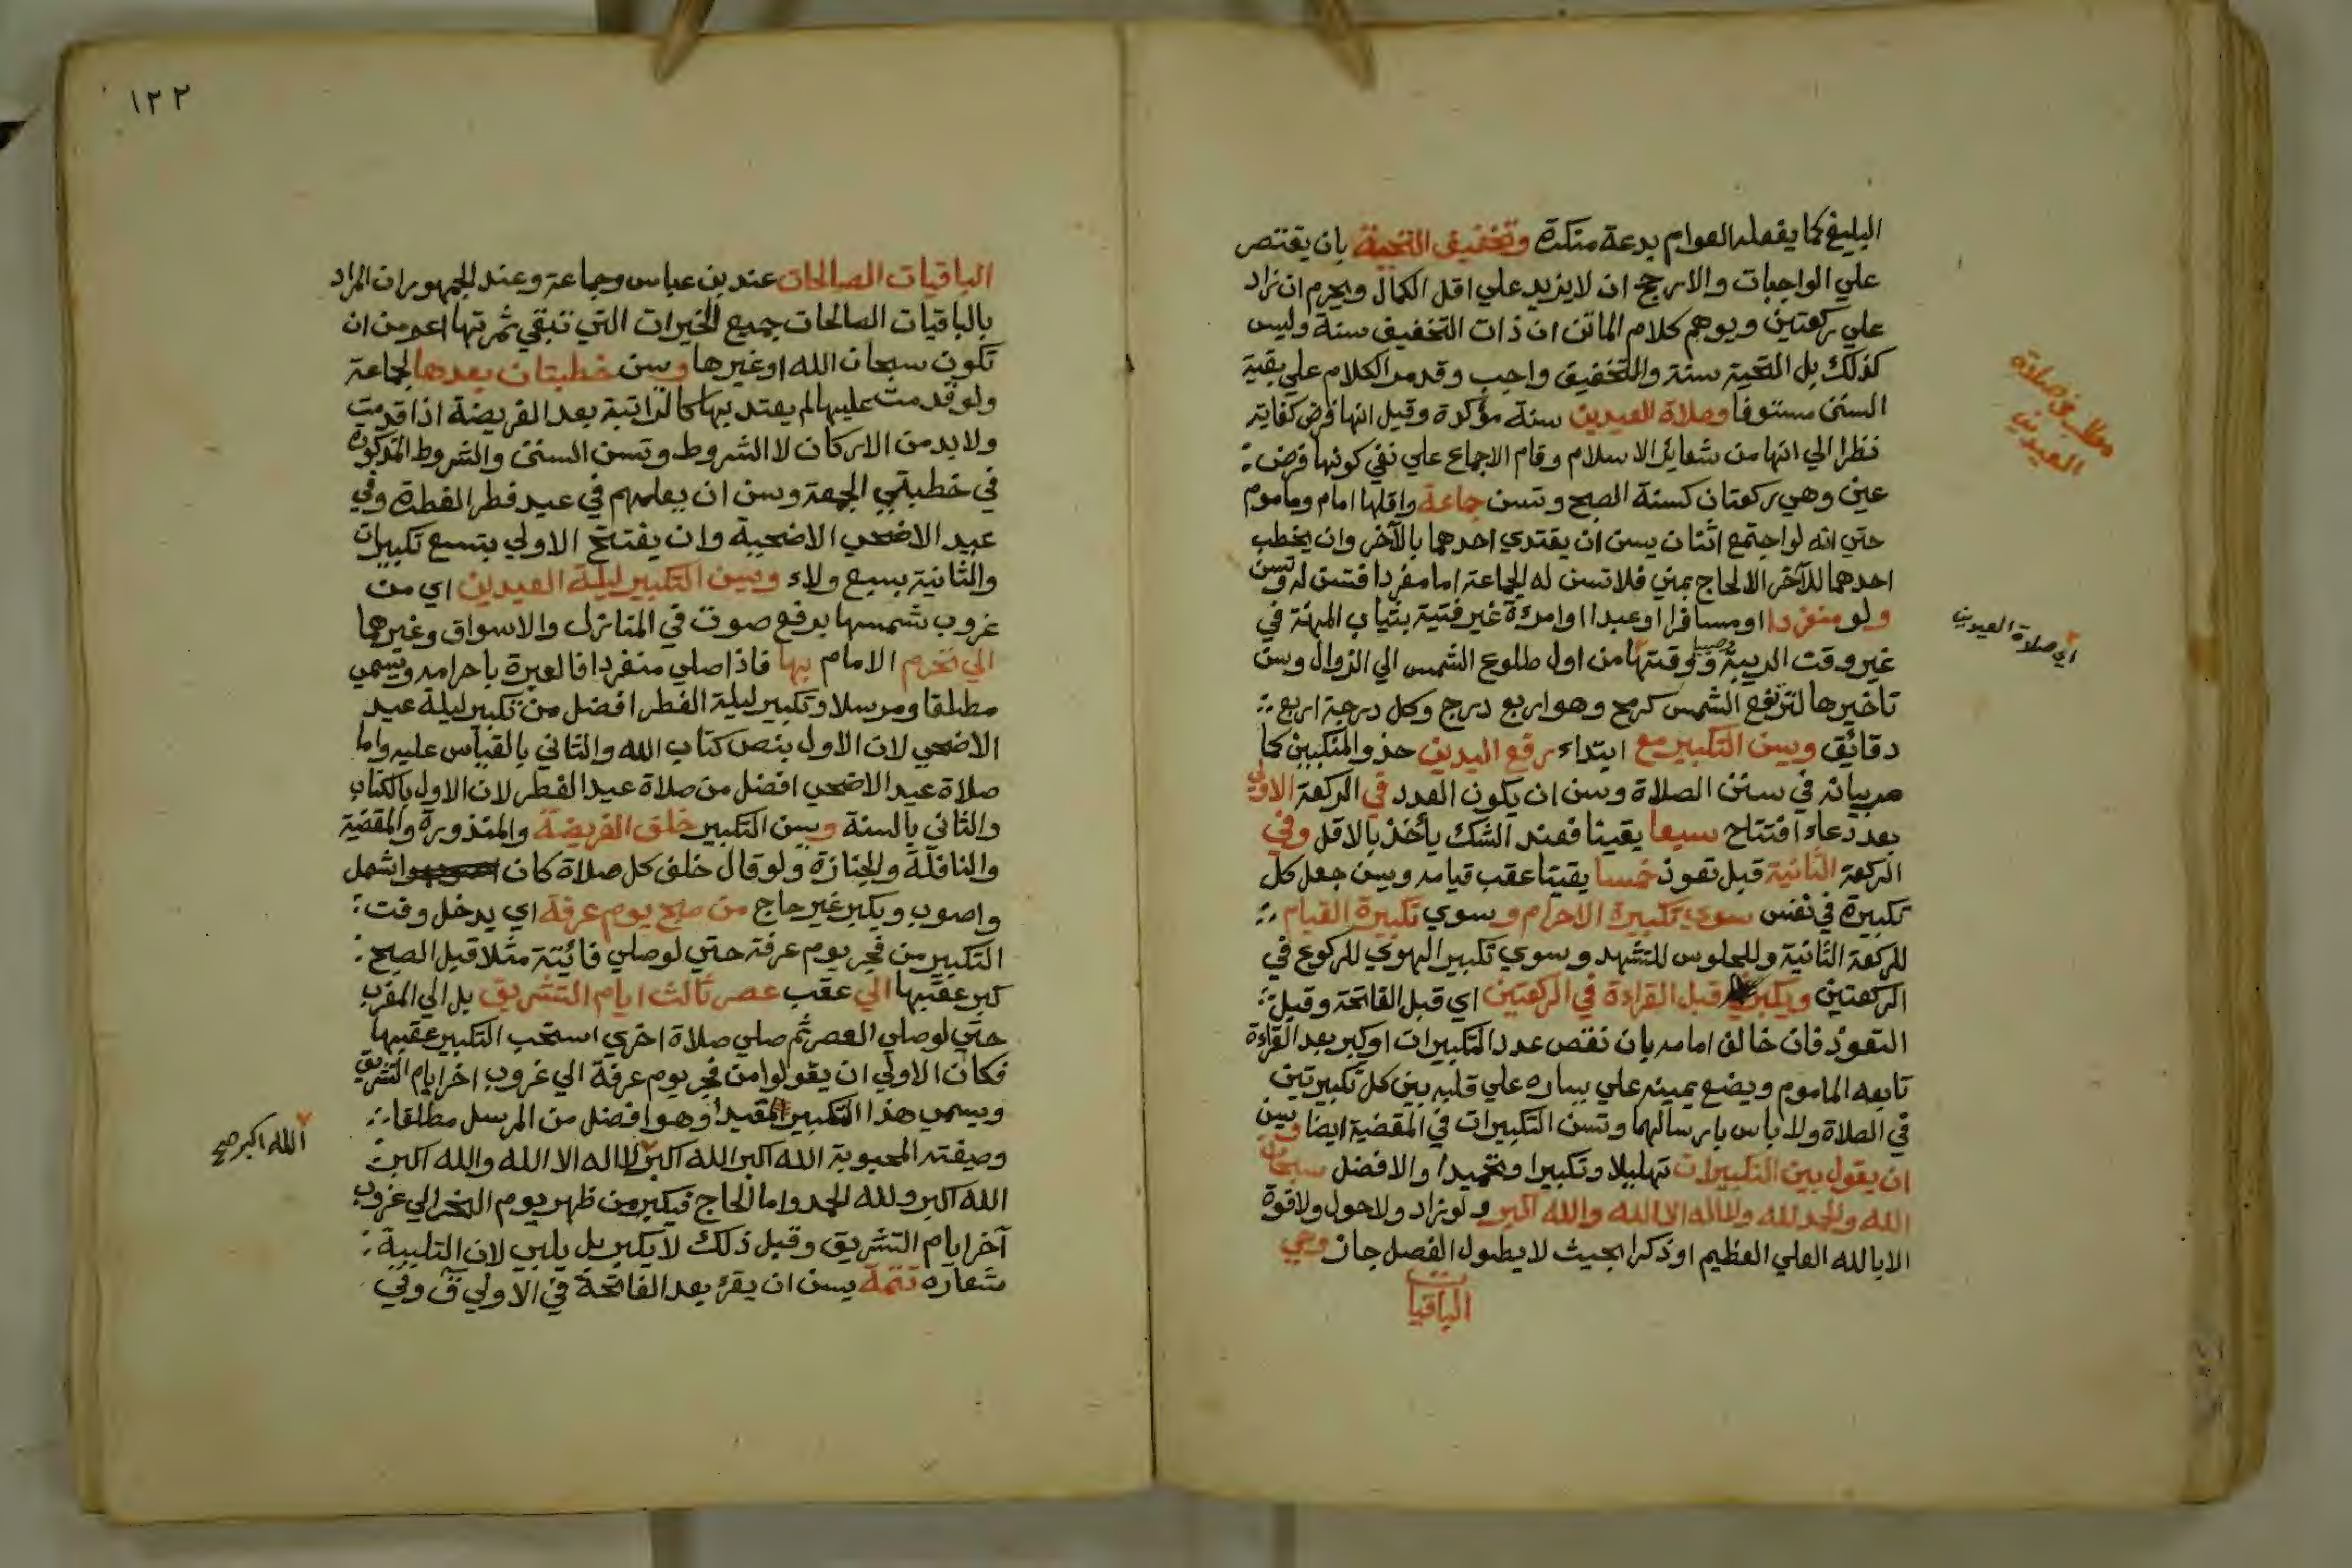 البليغ كما يفعله العوام بدعة منكرة وتخفيف التحية بان يقتصر
علي الواجبات والارجح ان لا يزيد علي اقل الكمال ويحرم ان زاد
علي ركعتين ويوهم كلام الماتن ان ذات التخفيف سنة وليس
كذلك بل التحية سنة والتخفيف واجب وقد مر الكلام علي بقية
السنن مستوفا وصلاة العيدين سنة مؤكدة وقيل انها فرض كفاية
نظرا الي انها من شعاير الاسلام وقام الاجماع علي نفي كونها فرض
عين وهي ركعتان كسنة الصبح وتسن جماعة واقلها امام وماموم
حتي انه لو اجتمع اثنان يسن ان يقتدي احدهما بالآخر وان يخطب
احدهما للآخر الا لحاج بمني فلا تسن له الجماعة اما مفردا فتسن له وتسن
ولو منفردا او مسافرا او عبدا او امرءة غير فتية بثياب المهنة في
غير وقت الريبة ووقتها من اول طلوع الشمس الي الزوال وسن
تاخيرها لترتفع الشمس كرمح وهو اربع درج وكل درجة اربع
دقائق ويسن التكبير مع ابتداء رفع اليدين حذو المنكبين كما
مر بيانه في سنن الصلاة وسن ان يكون العدد في الركعة الاولي
بعد دعاء افتتاح سبعا يقينا فعند الشك يأخذ بالاقل وفي
الركعة الثانية قبل تعوذ خمسا يقينا عقب قيامه ويسن جعل كل
تكبيرة في نفس سوي تكبيرة الاحرام وسوي تكبيرة القيام
للركعة الثانية وللجلوس للتشهد وسوي تكبير الهوي للركوع في
الركعتين ويكبر قبل القراءة في الركعتين اي قبل الفاتحة وقبل
التعوذ فان خالف امامه بان نقص عدد التكبيرات او كبر بعد القراءة
تابعه الماموم ويضع يمينه علي يساره علي قلبه بين كل تكبيرتين
في الصلاة ولا باس بارسالهما وتسن التكبيرات في المقضية ايضا ويسن
ان يقول بين التكبيرات تهليلا وتكبيرا وتحميدا والافضل سبحان
الله والحمد لله ولا اله الا الله والله اكبر ولو زاد ولا حول ولا قوة
الا بالله العلي العظيم او ذكرا بحيث لا يطول الفصل جاز وهي
الباقيات
مطلب في صلاة
العيدين
اي صلاة العيدين
١٢٢
الباقيات الصالحات عند بن عباس وجماعة وعند الجمهور ان المراد
بالباقيات الصالحات جميع الخيرات التي تبقي ثمرتها اعم من ان
تكون سبحان الله او غيرها وسن خطبتان بعدها لجماعة
ولو قدمت عليها لم يعتد بها كالراتبة بعد الفريضة اذا قدمت
ولا بد من الاركان لا الشروط وتسن السنن والشروط المذكورة
في خطبتي الجمعة وسن ان يعلمهم في عيد فطر الفطرة وفي
عيد الاضحي الاضحية وان يفتتح الاولي بتسع تكبيرات
والثانية بسبع ولاء ويسن التكبير ليلة العيدين اي من
غروب شمسها برفع صوت في المنازل والاسواق وغيرهما
الي تحرم الامام بها فاذا صلي منفردا فالعبرة باحرامه وتسمي
مطلقا ومرسلا وتكبير ليلة الفطر افضل من تكبير ليلة عيد
الاضحي لان الاول بنص كتاب الله والثاني بالقياس عليه واما
صلاة عيد الاضحي افضل من صلاة عيد الفطر لان الاول بالكتاب
والثاني بالسنة ويسن التكبير خلف الفريضة والمنذورة والمقضية
والنافلة والجنازة ولو قال خلف كل صلاة كان اشمل
واصوب ويكبر غير حاج من صبح يوم عرفة اي يدخل وقت
التكبير من فجر يوم عرفة حتي لو صلي فائتة مثلا قبل الصبح
كبر عقبها الي عقب عصر ثالث ايام التشريق بل الي المغرب
حتي لو صلي العصر ثم صلي صلاة اخري استحب التكبير عقبها
فكان الاولي ان يقولوا من فجر يوم عرفة الي غروب اخر ايام التشريق
ويسمي هذا التكبير المقيد وهو افضل من المرسل مطلقا
وصيغته المحبوبة الله اكبر الله اكبر لا اله الا الله والله اكبر
الله اكبر ولله الحمد واما الحاج فيكبر من ظهر يوم النحر الي غروب
آخر ايام التشريق وقبل ذلك لا يكبر بل يلبي لان التلبية
شعاره تتمة يسن ان يقرء بعد الفاتحة في الاولي ق وفي
الله اكبر صح